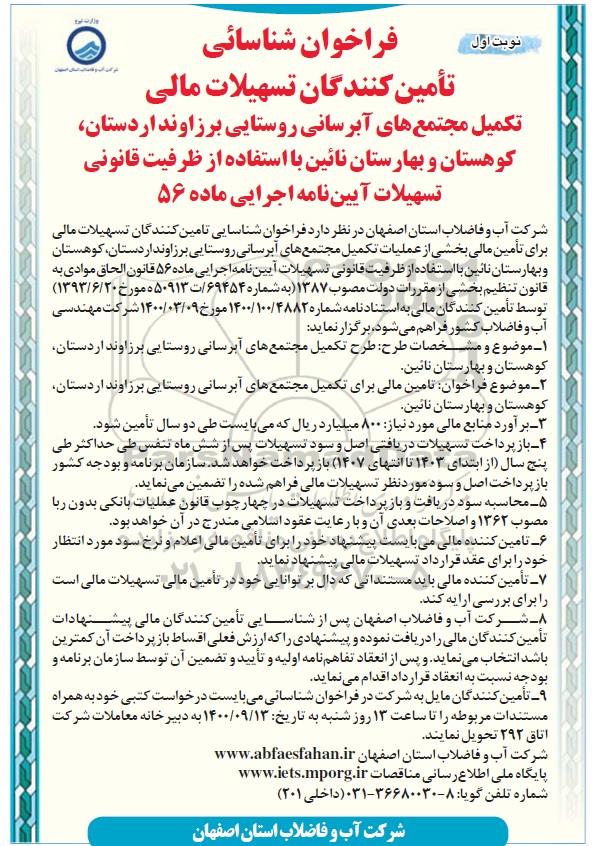 وزارت نیرو
شرکت آب و فاضلاب استان اصفهان
نوبت اول
فراخوان شناسائی
تأمین کنندگان تسهیلات مالی
تکمیل مجتمع‌های آبرسانی روستایی برزاوند اردستان،
کوهستان و بهارستان نائین با استفاده از ظرفیت قانونی
تسهیلات آیین‌نامه اجرایی ماده ۵۶
شرکت آب و فاضلاب استان اصفهان در نظر دارد فراخوان شناسایی تامین کنندگان تسهیلات مالی
برای تأمین مالی بخشی از عملیات تکمیل مجتمع‌های آبرسانی روستایی برزاوند اردستان، کوهستان
و بهارستان نائین با استفاده از ظرفیت قانونی تسهیلات آیین‌نامه اجرایی ماده ۵۶ قانون الحاق موادی به
قانون تنظیم بخشی از مقررات دولت مصوب ۱۳۸۷ (به شماره ۶۹۴۵۴/ت۵۰۹۱۳ه مورخ ۱۳۹۳/۶/۲۰)
توسط تأمین کنندگان مالی به استناد نامه شماره ۱۴۰۰/۱۰۰/۴۸۸۲ مورخ ۱۴۰۰/۰۳/۰۹ شرکت مهندسی
آب و فاضلاب کشور فراهم می‌شود، برگزار نماید:
۱ـ موضوع و مشخصات طرح: طرح تکمیل مجتمع‌های آبرسانی روستایی برزاوند اردستان،
کوهستان و بهارستان نائین.
۲ـ موضوع فراخوان: تامین مالی برای تکمیل مجتمع‌های آبرسانی روستایی برزاوند اردستان،
کوهستان و بهارستان نائین.
۳ـ برآورد منابع مالی مورد نیاز: ۸۰۰ میلیارد ریال که می‌بایست طی دو سال تأمین شود.
۴ـ بازپرداخت تسهیلات دریافتی، اصل و سود تسهیلات پس از شش ماه تنفس طی حداکثر طی
پنج سال (از ابتدای ۱۴۰۳ تا انتهای ۱۴۰۷) بازپرداخت خواهد شد. سازمان برنامه و بودجه کشور
بازپرداخت اصل و سود مورد نظر تسهیلات مالی فراهم شده را تضمین می‌نماید.
۵ـ محاسبه سود دریافت و بازپرداخت تسهیلات در چهارچوب قانون عملیات بانکی بدون ربا
مصوب ۱۳۶۲ و اصلاحات بعدی آن و با رعایت عقود اسلامی مندرج در آن خواهد بود.
۶ـ تامین کننده مالی می‌بایست پیشنهاد خود را برای تأمین مالی اعلام و نرخ سود مورد انتظار
خود را برای عقد قرارداد تسهیلات مالی پیشنهاد نماید.
۷ـ تأمین کننده مالی باید مستنداتی که دال بر توانایی خود در تأمین مالی تسهیلات مالی است
را برای بررسی ارایه کند.
۸ـ شرکت آب و فاضلاب اصفهان پس از شناسایی تأمین کنندگان مالی پیشنهادات
تأمین کنندگان مالی را دریافت نموده و پیشنهادی را که ارزش فعلی اقساط بازپرداخت آن کمترین
باشد انتخاب می‌نماید. و پس از انعقاد تفاهم‌نامه اولیه و تأیید و تضمین آن توسط سازمان برنامه و
بودجه نسبت به انعقاد قرارداد اقدام می‌نماید.
۹ـ تأمین کنندگان مایل به شرکت در فراخوان شناسائی می‌بایست درخواست کتبی خود به همراه
مستندات مربوطه را تا ساعت ۱۳ روز شنبه به تاریخ: ۱۴۰۰/۰۹/۱۳ به دبیرخانه معاملات شرکت
اتاق ۲۹۲ تحویل نمایند.
شرکت آب و فاضلاب استان اصفهان www.abfaesfahan.ir
پایگاه ملی اطلاع رسانی مناقصات www.iets.mporg.ir
شماره تلفن گویا: ۸-۳۶۶۸۰۰۳۰-۰۳۱ (داخلی ۲۰۱)
شرکت آب و فاضلاب استان اصفهان